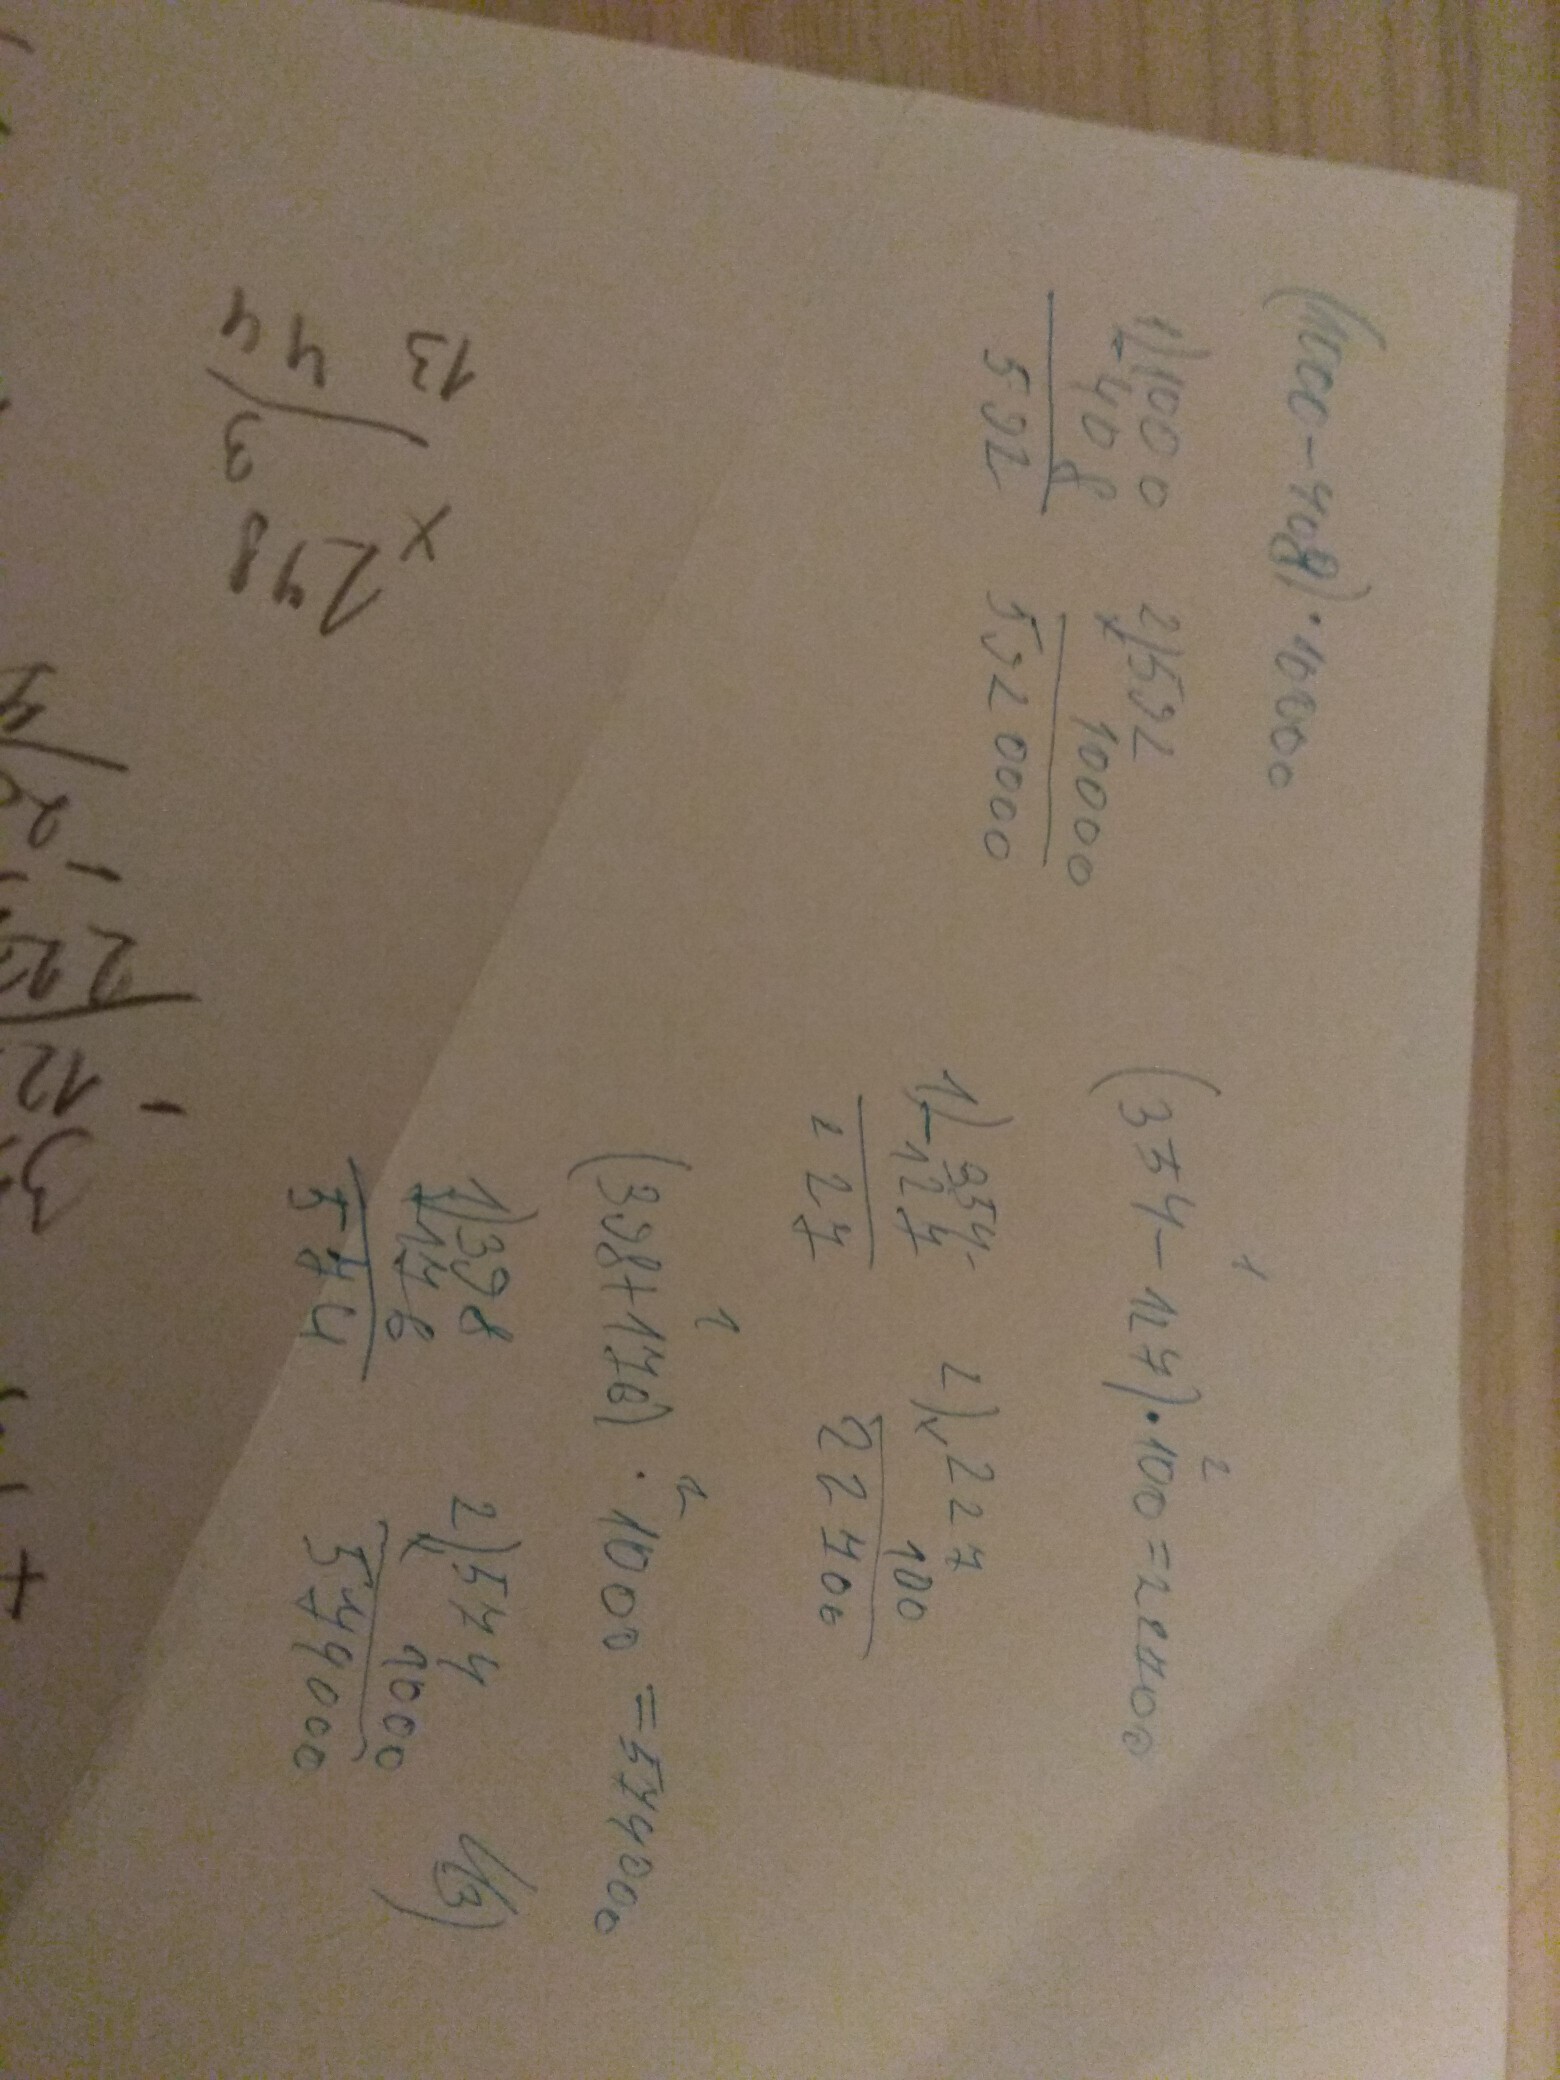 (1000-408)·10000
1) 1000
- 408
592
2) 592
x 10000
5920000
(354-127)·100=22700
1 2
1) 354
- 127
227
2) 227
x 100
22700
(398+176)·1000=574000
1 2
1) 398
+ 176
574
2) 574
x 1000
574000
13
44
4
3
x
248